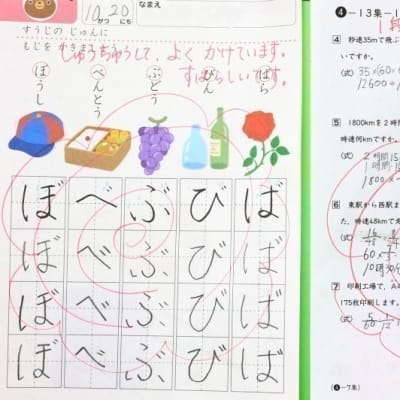 なまえ
10がつ20にち
すうじの じゅんに
もじを かきま
しゅうちゅうして、よく かけています。
すばらしいです。
ばら
びん
ぶどう
べんとう
ぼうし
ば び ぶ べ ぼ
ば び ぶ べ ぼ
ば び ぶ べ ぼ
ば び ぶ べ ぼ
❹－13集－1
4 秒速35mで飛ぶ
いですか。
(式) 35×(60×6
12600÷1
5 1800kmを2時間
時速何kmですか。
(式) 2時間15
1800×
6 東駅から西駅ま
た、時速48kmで走
(式)
10時30分
7 印刷工場で、A4
175枚印刷します。
(式)
(❹－7集)